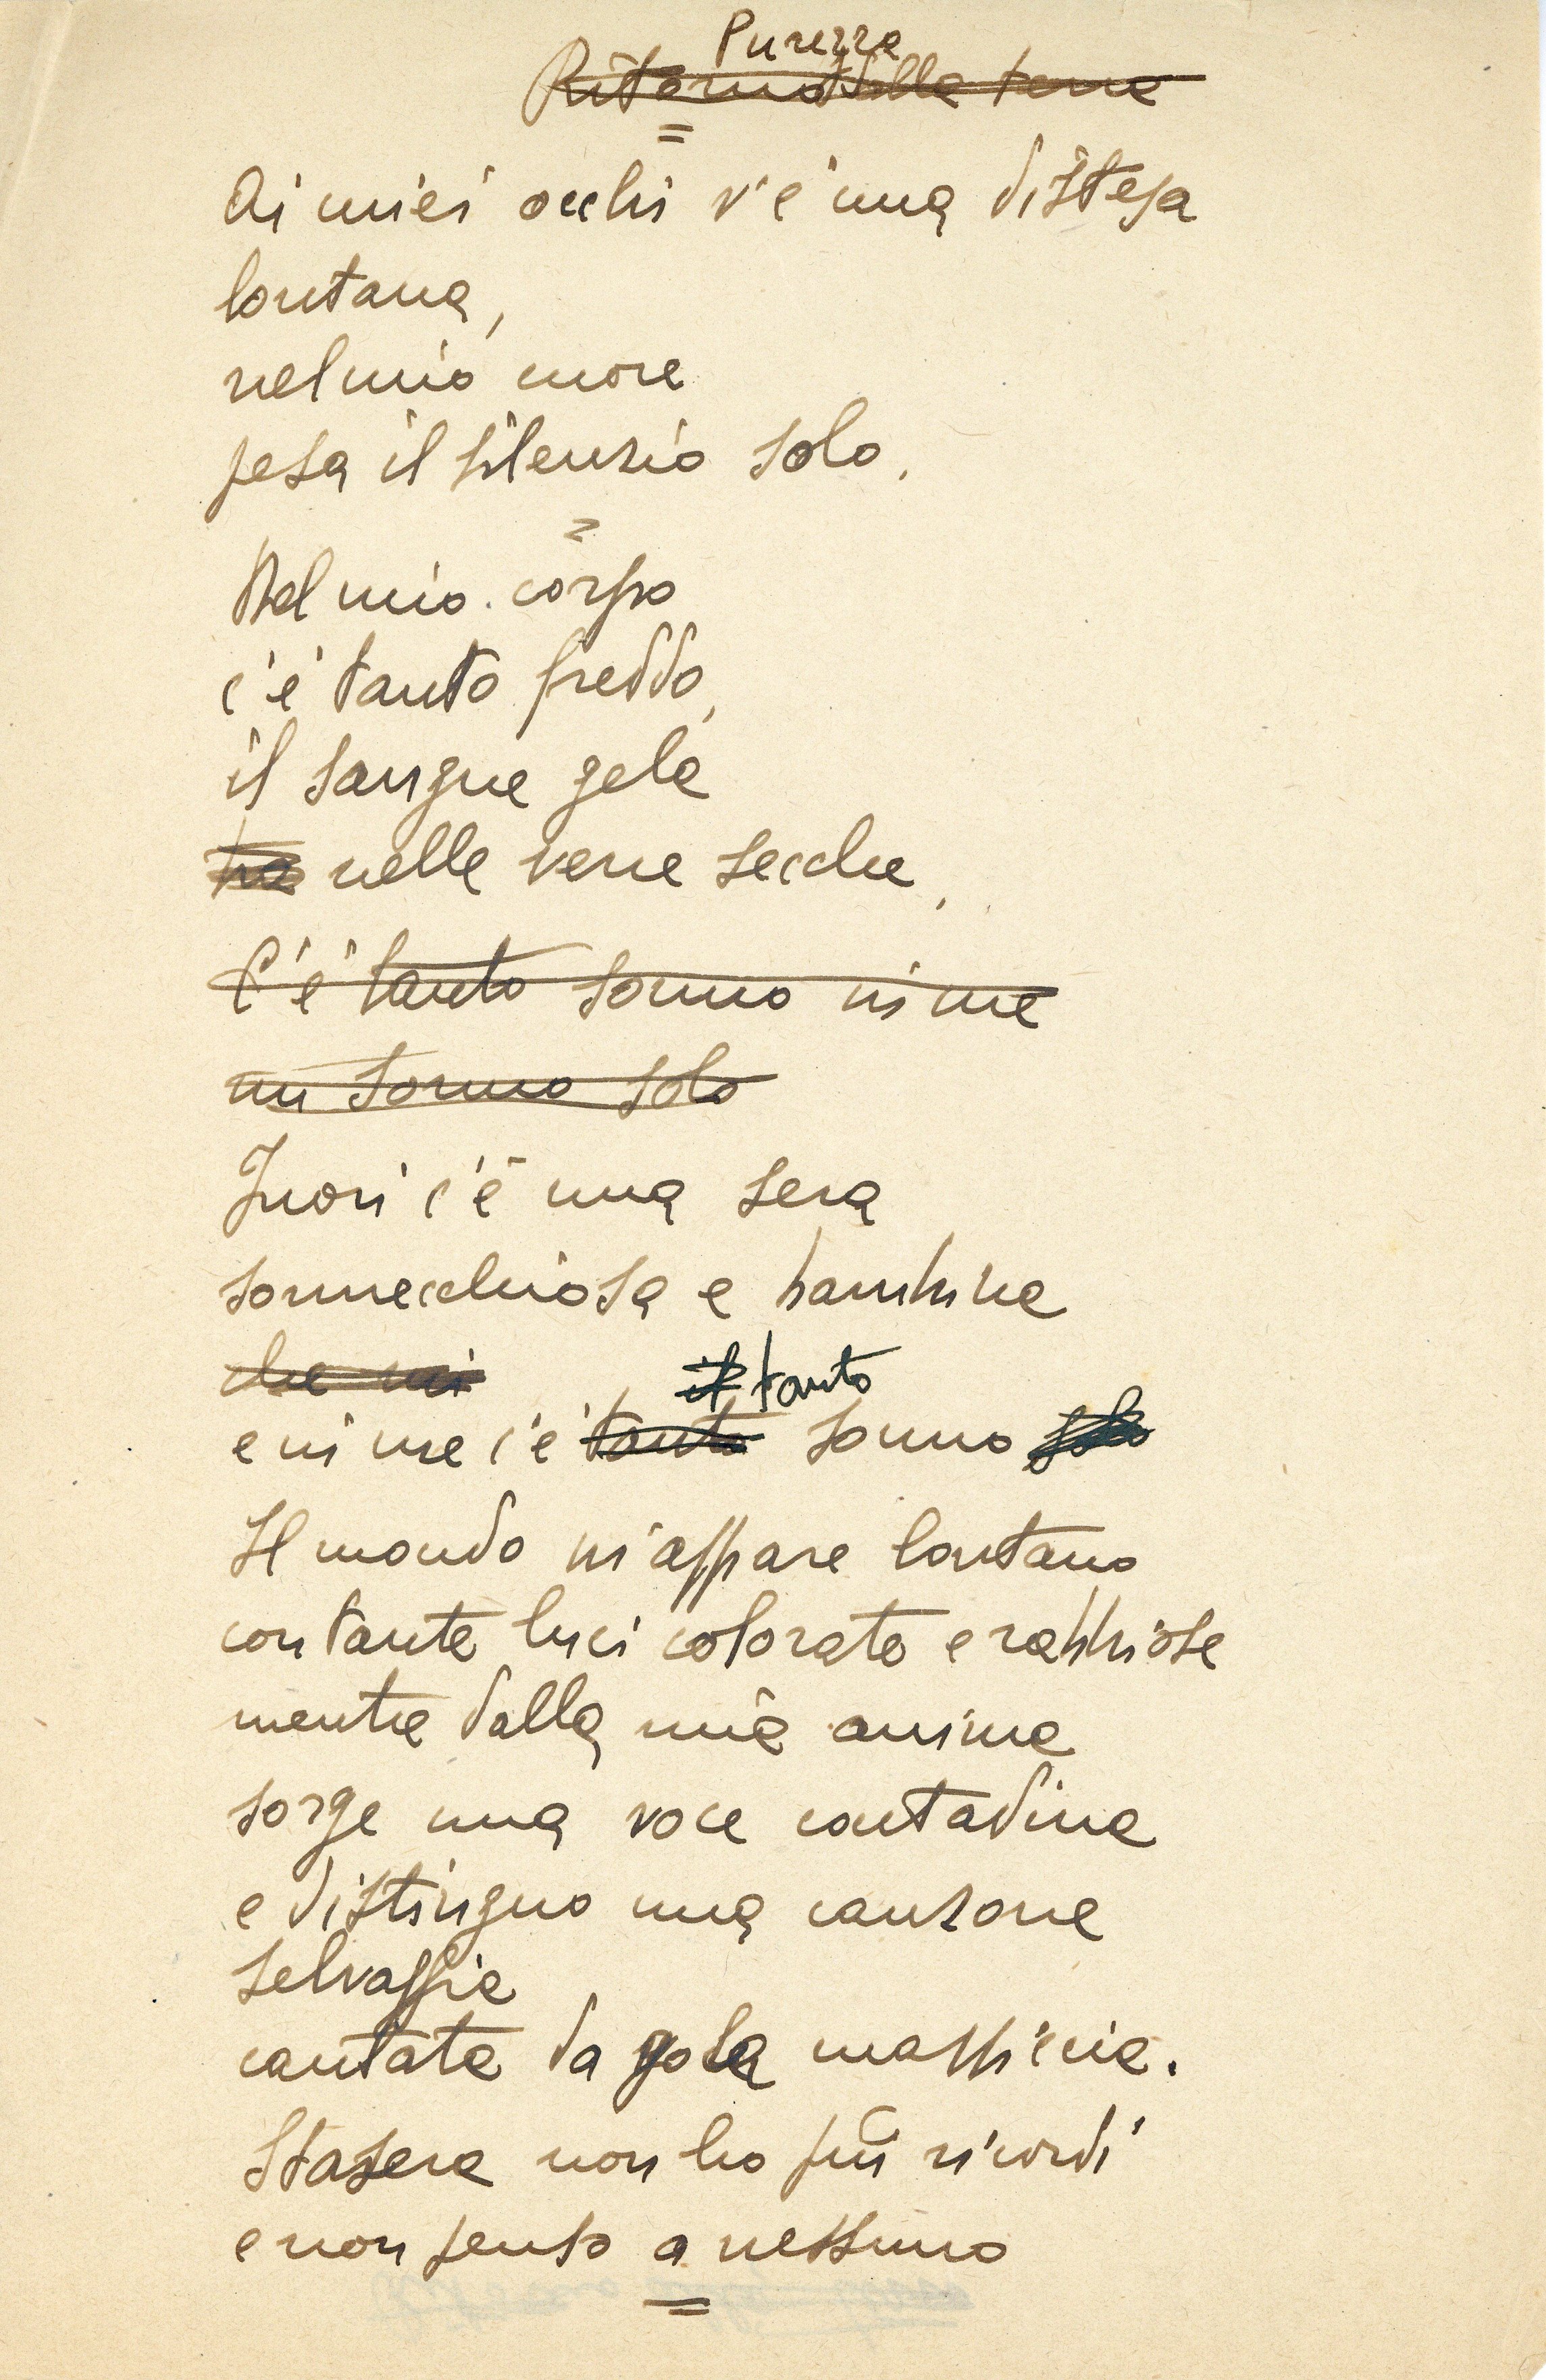 Purezza
Ritorno dalla terra
Ai miei occhi v'è una distesa
lontana,
nel mio cuore
pesa il silenzio solo.
Nel mio corpo
c'è tanto freddo,
il sangue gela
ha nelle vene secche.
C'è tanto sonno in me
un sonno solo
Fuori c'è una sera
sonnecchiosa e bambina
che mi
il tanto
e in me c'è tanto sonno solo
Il mondo m'appare lontano
con tante luci colorate e rabbiose
mentre dalla mia anima
sorge una voce contadina
e distinguo una canzone
selvaggia
cantata da gola massiccia.
Stasera non ho più ricordi
e non penso a nessuno